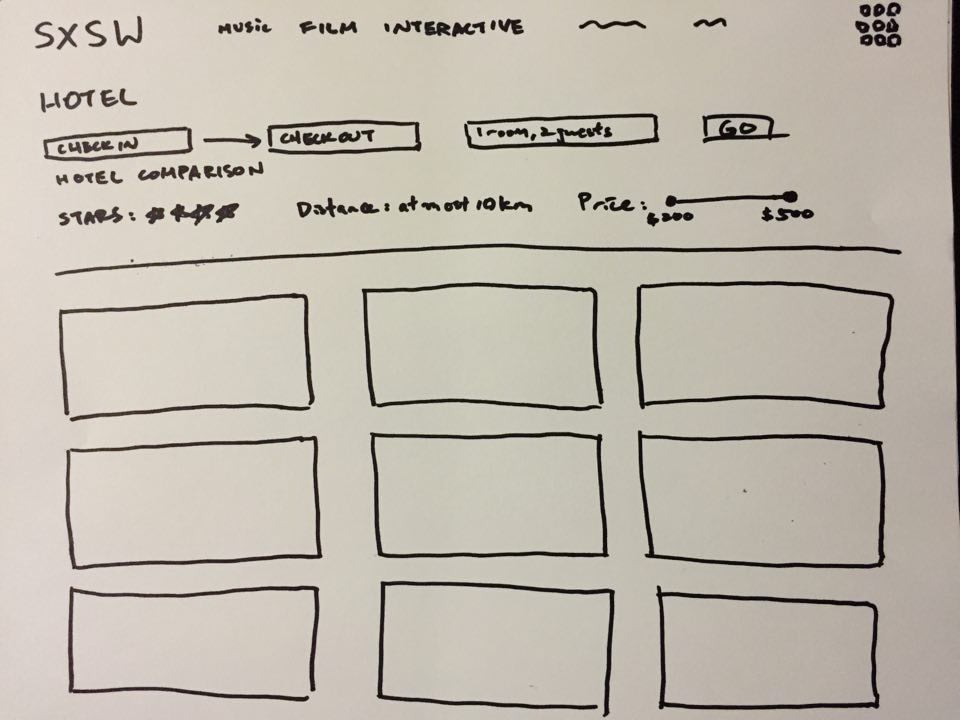 SXSW MUSIC FILM INTERACTIVE
HOTEL
CHECK IN CHECK OUT 1 room, 2 guests GO
HOTEL COMPARISON
STARS: Distance: at most 10km Price:
$200 $500